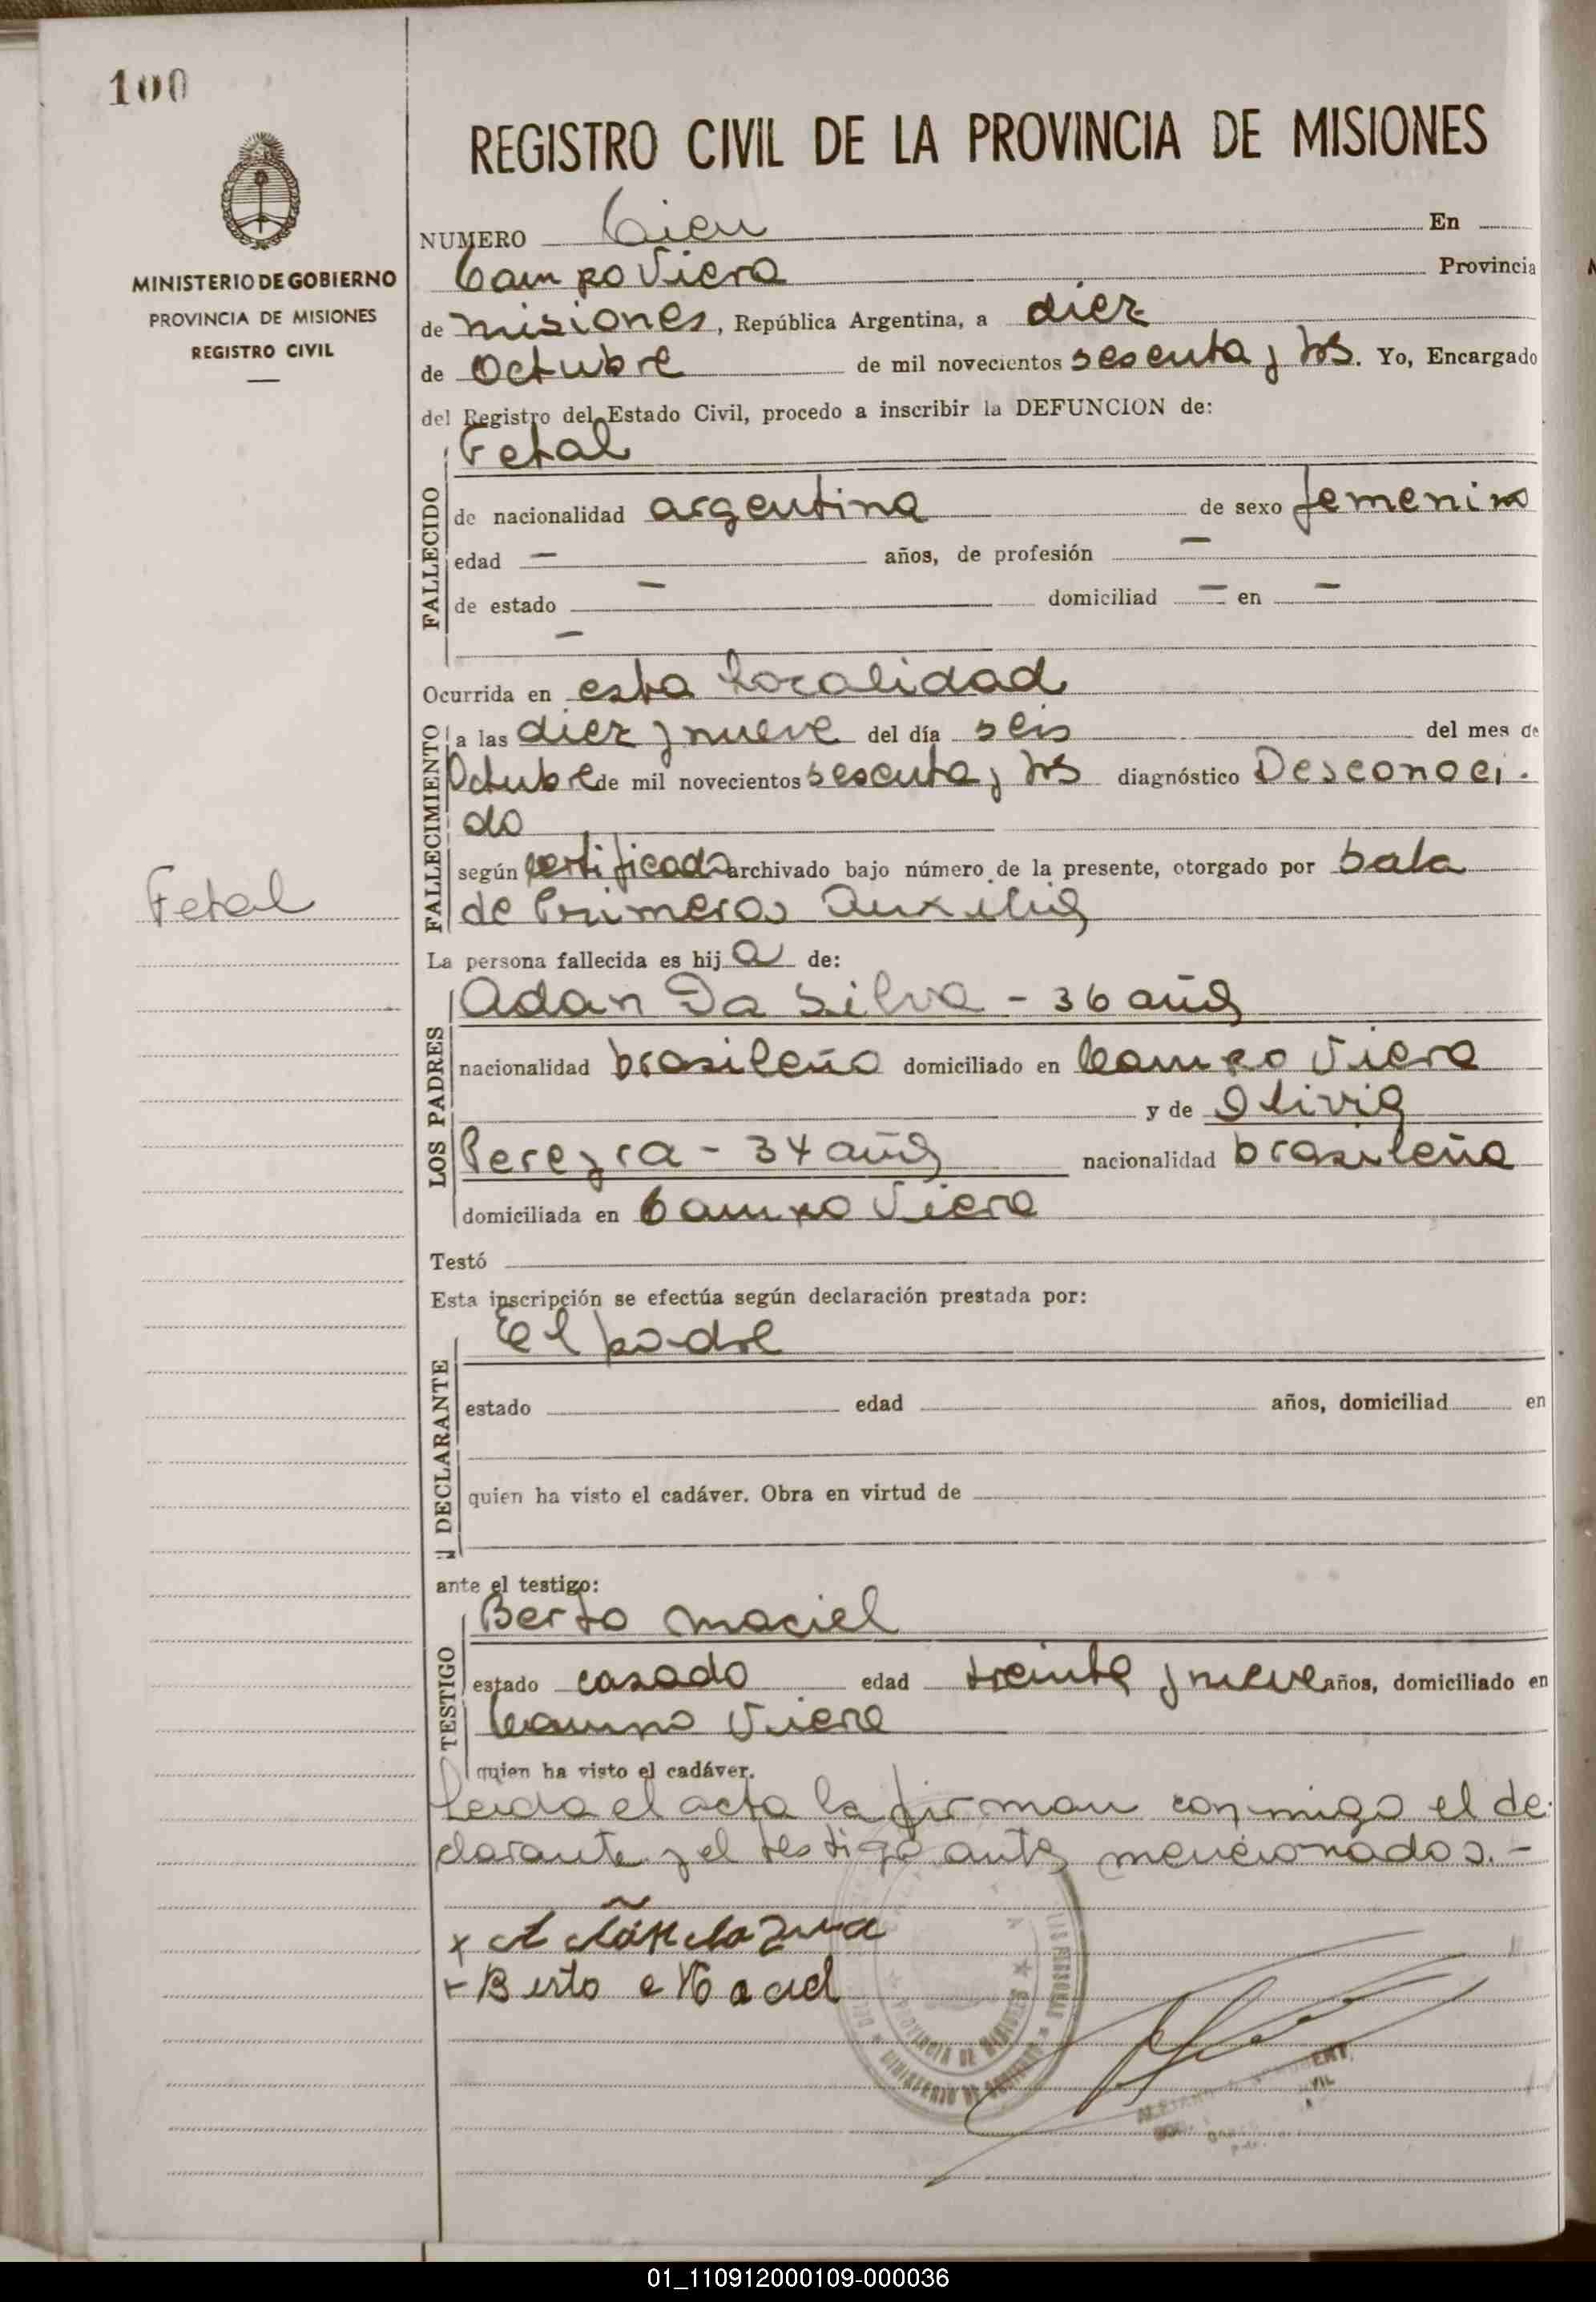 100
MINISTERIO DE GOBIERNO
PROVINCIA DE MISIONES
REGISTRO CIVIL
REGISTRO CIVIL DE LA PROVINCIA DE MISIONES
NUMERO Cien En
Campo Viera Provincia
de misiones, República Argentina, a diez
de Octubre de mil novecientos sesenta y tres. Yo, Encargado
del Registro del Estado Civil, procedo a inscribir la DEFUNCION de:
Fetal
FALLECIDO
de nacionalidad argentina de sexo femenino
edad — años, de profesión —
de estado — domiciliad — en —
—
Ocurrida en esta localidad
FALLECIMIENTO
a las diez y nueve del día seis del mes de
Octubre de mil novecientos sesenta y tres diagnóstico Desconoci-
do
según certificado archivado bajo número de la presente, otorgado por Sala
de Primeros Auxilios
Fetal
La persona fallecida es hija de:
LOS PADRES
Adan Da Silva - 36 años
nacionalidad brasileño domiciliado en Campo Viera
y de Olivia
Pereyra - 34 años nacionalidad brasileña
domiciliada en Campo Viera
Testó
Esta inscripción se efectúa según declaración prestada por:
El padre
DECLARANTE
estado edad años, domiciliad en
quien ha visto el cadáver. Obra en virtud de
ante el testigo:
Berto Maciel
TESTIGO
estado casado edad treinta y nueve años, domiciliado en
Campo Viera
quien ha visto el cadáver.
Leida el acta la firman conmigo el de-
clarante y el testigo antes mencionados.-
x
Berto Maciel
PROVINCIA DE MISIONES
MINISTERIO DE GOBIERNO
01_110912000109-000036